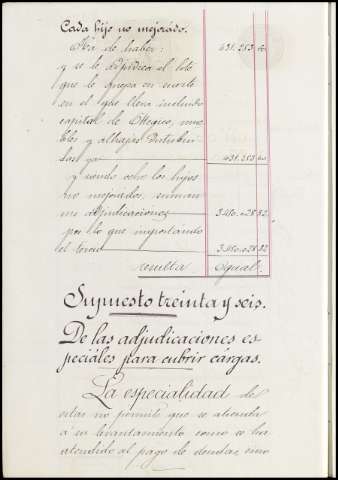 Cada hijo no mejorado.
Ha de haber: 431.253,60
y se le adjudica el lote
que le quepa en suerte
en el que lleva incluido
capital de Mégico, mue
bles y alhajas distribui
das ya 431.253,60
y siendo ocho los hijos
no mejorados, suman
sus adjudicaciones 3.450.028,82
por lo que importando
el total 3.450.028,82
resulta Ygual.
Supuesto treinta y seis.
De las adjudicaciones es
peciales para cubrir cárgas.
La especialidad de
estas no permite que se atienda
á su levantamiento como se ha
atendido al pago de deudas, sino